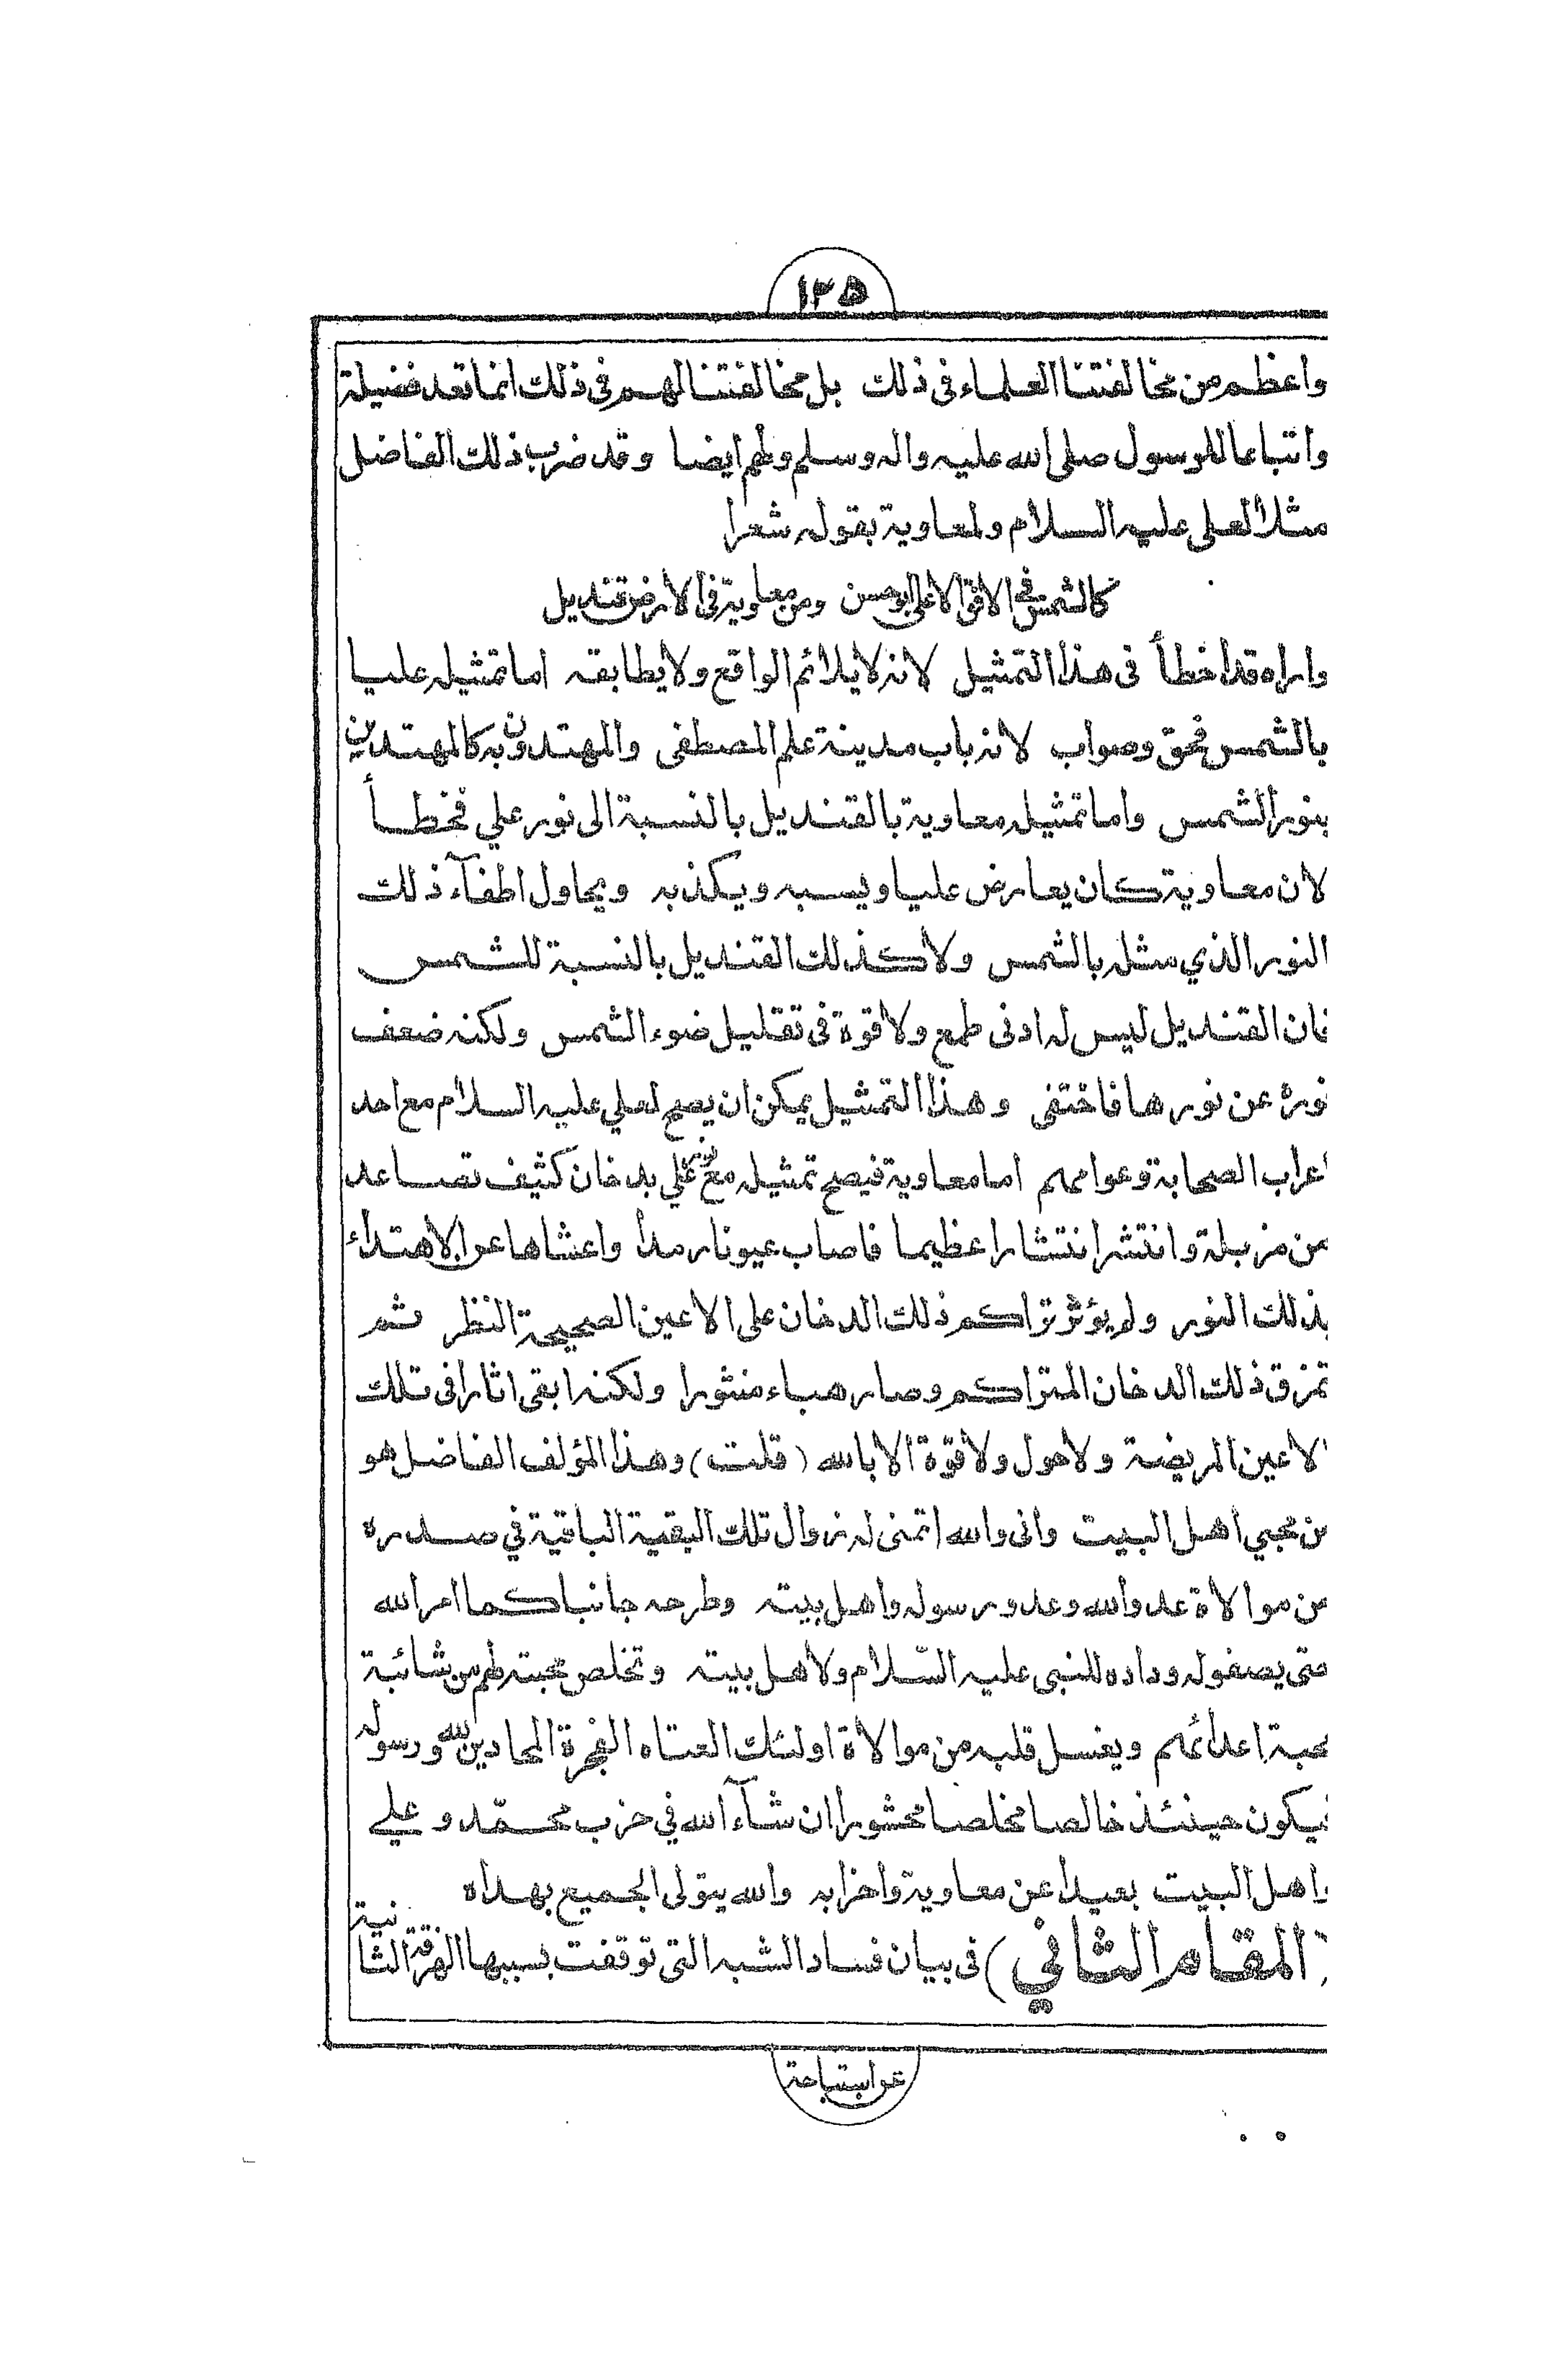 ١٣٥
واعظم من مخالفتنا العلماء فى ذلك بل مخالفتنا لهم فى ذلك انما تعد فضيلة
واتباعا للرسول صلى الله عليه واله وسلم ولهم ايضا وقد ضرب ذلك الفاضل
مثلا لعلى عليه السلام ولمعاوية بقوله شعرا
كالشمس فى الافق الاعلى ابو حسن ومن معاوية فى الأرض قنديل
واراه قد اخطأ فى هذا التمثيل لانه لا يلائم الواقع ولا يطابقه اما تمثيله عليا
بالشمس فحق وصواب لانه باب مدينة علم المصطفى والمهتدون به كالمهتدين
بنور الشمس واما تمثيله معاوية بالقنديل بالنسبة الى نور علي فخطأ
لان معاوية كان يعارض عليا ويسبه ويكذبه ويحاول اطفآء ذلك
النور الذي مثله بالشمس ولا كذلك القنديل بالنسبة للشمس
فان القنديل ليس له ادنى طمع ولا قوة فى تقليل ضوء الشمس ولكنه ضعف
نوره عن نورها فاختفى وهذا التمثيل يمكن ان يصح لعلي عليه السلام مع احد
اعراب الصحابة وعوامهم اما معاوية فيصح تمثيله مع نور علي بدخان كثيف تصاعد
من مزبلة وانتشر انتشارا عظيما فاصاب عيونا رمدا واعشاها عن الاهتداء
بذلك النور ولم يؤثر تراكم ذلك الدخان على الاعين الصحيحة النظر ثم
تمزق ذلك الدخان المتراكم وصار هباء منثورا ولكنه ابقى اثارا فى تلك
الاعين المريضة ولا حول ولا قوّة الا بالله (قلت) وهذا المؤلف الفاضل هو
من محبي اهل البيت وانى والله اتمنى له زوال تلك البقية الباقية في صدره
من موالاة عدو الله وعدو رسوله واهل بيته وطرحه جانبا كما امر الله
حتى يصفو له وداده للنبى عليه السّلام ولأهل بيته وتخلص محبته لهم من شائبة
محبة اعدائهم ويغسل قلبه من موالاة اولئك العتاه الفجرة المحادين لله ورسوله
فيكون حينئذ خالصا مخلصا محشورا ان شآء الله في حزب محمّد وعلي
واهل البيت بعيدا عن معاوية واحزابه والله يتولى الجميع بهداه
(المقام الثاني) فى بيان فساد الشبه التى توقفت بسببها الفرقة الثانية